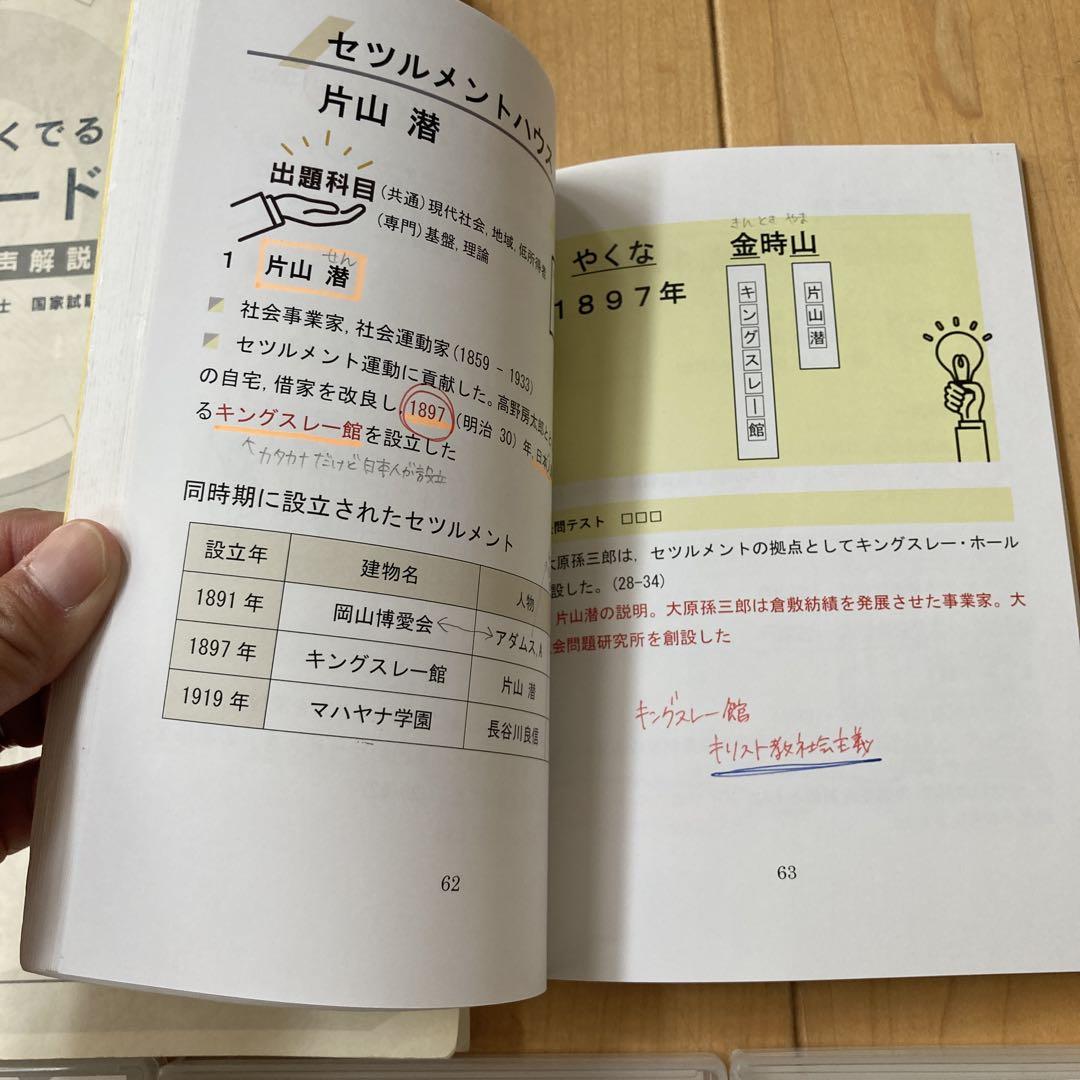 くでる
ード
声解説
士 国家試
セツルメントハウス
片山 潜
出題科目
(共通)現代社会, 地域, 低所得者
(専門)基盤, 理論
せん
1 片山 潜
社会事業家, 社会運動家(1859 - 1933)
セツルメント運動に貢献した。高野房太郎と
の自宅, 借家を改良し, 1897 (明治 30) 年, 日本
るキングスレー館を設立した
カタカナだけど日本人が設立
同時期に設立されたセツルメント
設立年 建物名 人物
1891 年 岡山博愛会 アダムス, A
1897 年 キングスレー館 片山 潜
1919 年 マハヤナ学園 長谷川良信
62
きんときやま
やくな 金時山
1897年
キングスレー館
片山潜
問テスト □□□
大原孫三郎は, セツルメントの拠点としてキングスレー・ホール
設した。(28-34)
片山潜の説明。大原孫三郎は倉敷紡績を発展させた事業家。大
会問題研究所を創設した
キングスレー館
キリスト教社会主義
63